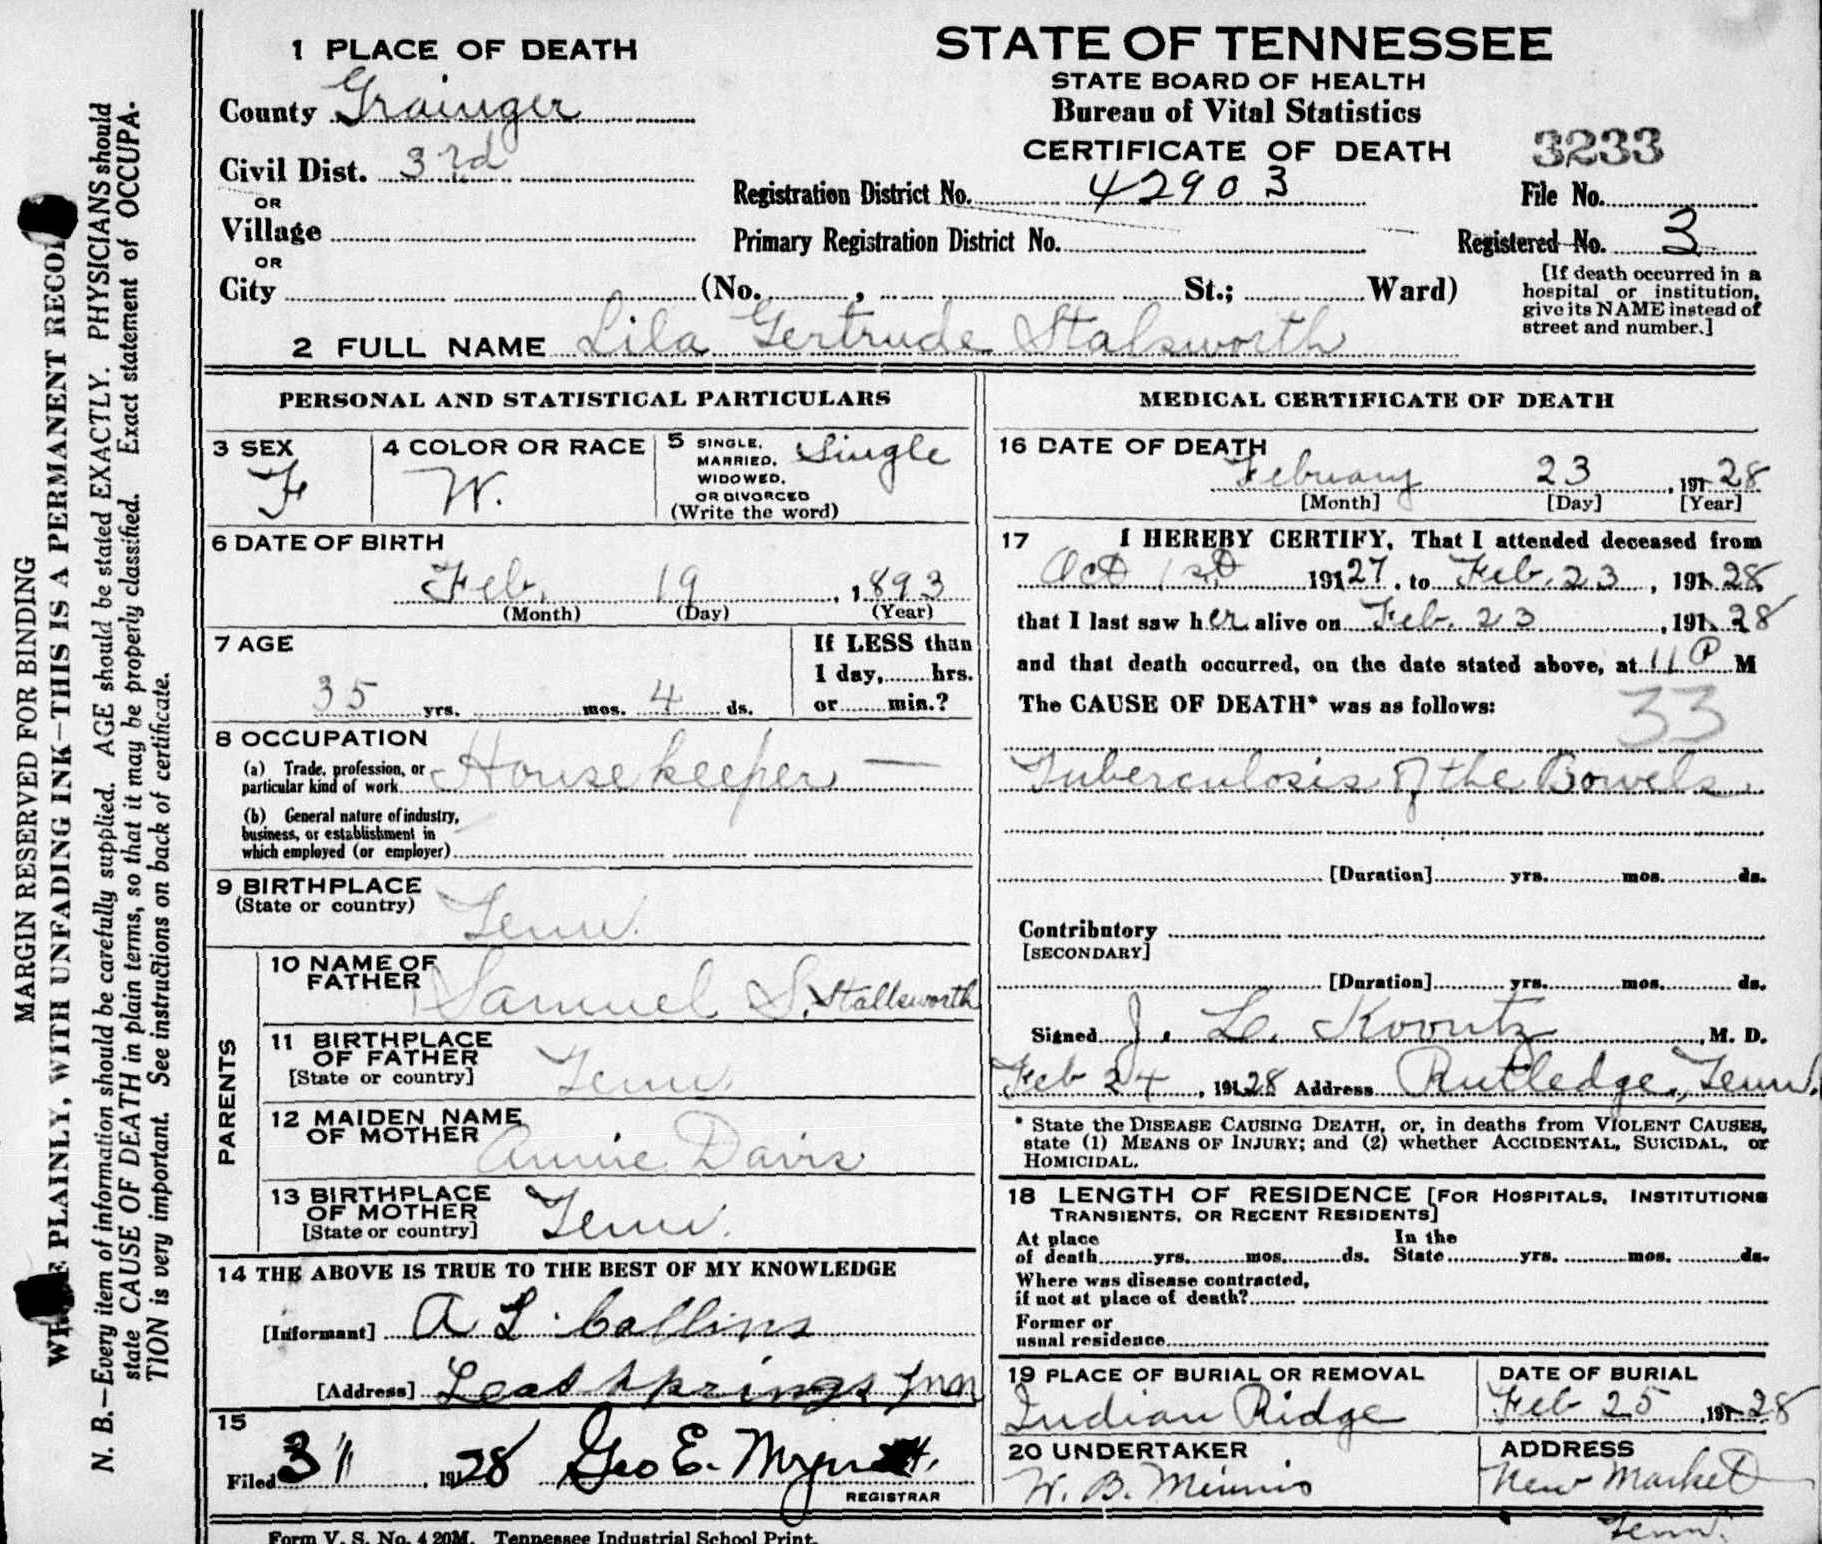 MARGIN RESERVED FOR BINDING
PLAINLY, WITH UNFADING INK—THIS IS A PERMANENT RECOR
N. B.—Every item of information should be carefully supplied. AGE should be stated EXACTLY. PHYSICIANS should
state CAUSE OF DEATH in plain terms, so that it may be properly classified. Exact statement of OCCUPA-
TION is very important. See instructions on back of certificate.
1 PLACE OF DEATH
County Grainger
Civil Dist. 3rd
OR
Village
OR
City (No. , St.; Ward)
STATE OF TENNESSEE
STATE BOARD OF HEALTH
Bureau of Vital Statistics
CERTIFICATE OF DEATH
3233
Registration District No. 42903
File No.
Primary Registration District No.
Registered No. 3
[If death occurred in a
hospital or institution,
give its NAME instead of
street and number.]
2 FULL NAME Lila Gertrude Stalsworth
PERSONAL AND STATISTICAL PARTICULARS
3 SEX
F
4 COLOR OR RACE
W.
5 SINGLE,
MARRIED,
WIDOWED,
OR DIVORCED
(Write the word)
Single
6 DATE OF BIRTH
Feb. 19, 1893
(Month) (Day) (Year)
7 AGE
35 yrs. mos. 4 ds.
If LESS than
1 day, hrs.
or min.?
8 OCCUPATION
(a) Trade, profession, or
particular kind of work Housekeeper —
(b) General nature of industry,
business, or establishment in
which employed (or employer)
9 BIRTHPLACE
(State or country) Tenn.
PARENTS
10 NAME OF
FATHER Samuel S. Stallsworth
11 BIRTHPLACE
OF FATHER
[State or country] Tenn.
12 MAIDEN NAME
OF MOTHER Annie Davis
13 BIRTHPLACE
OF MOTHER
[State or country] Tenn.
14 THE ABOVE IS TRUE TO THE BEST OF MY KNOWLEDGE
[Informant] A L. Collins
[Address] Lead Springs Tnn
15
Filed 3 11, 1928 Geo E.
REGISTRAR
Form V. S. No. 4 20M. Tennessee Industrial School Print.
MEDICAL CERTIFICATE OF DEATH
16 DATE OF DEATH
February 23, 1928
[Month] [Day] [Year]
17 I HEREBY CERTIFY, That I attended deceased from
Oct 1st 1927, to Feb. 23, 1928
that I last saw her alive on Feb. 23, 1928
and that death occurred, on the date stated above, at 11 P M
The CAUSE OF DEATH* was as follows:
33
Tuberculosis of the Bowels.
[Duration] yrs. mos. ds.
Contributory
[SECONDARY]
[Duration] yrs. mos. ds.
Signed J. L. Koontz, M. D.
Feb 24, 1928 Address Rutledge, Tenn.
* State the DISEASE CAUSING DEATH, or, in deaths from VIOLENT CAUSES,
state (1) MEANS OF INJURY; and (2) whether ACCIDENTAL, SUICIDAL, or
HOMICIDAL.
18 LENGTH OF RESIDENCE [FOR HOSPITALS, INSTITUTIONS
TRANSIENTS, OR RECENT RESIDENTS]
At place
of death yrs. mos. ds.
In the
State yrs. mos. ds.
Where was disease contracted,
if not at place of death?
Former or
usual residence
19 PLACE OF BURIAL OR REMOVAL
Indian Ridge
DATE OF BURIAL
Feb 25, 1928
20 UNDERTAKER
W. B. Minnis
ADDRESS
New Market
Tenn.